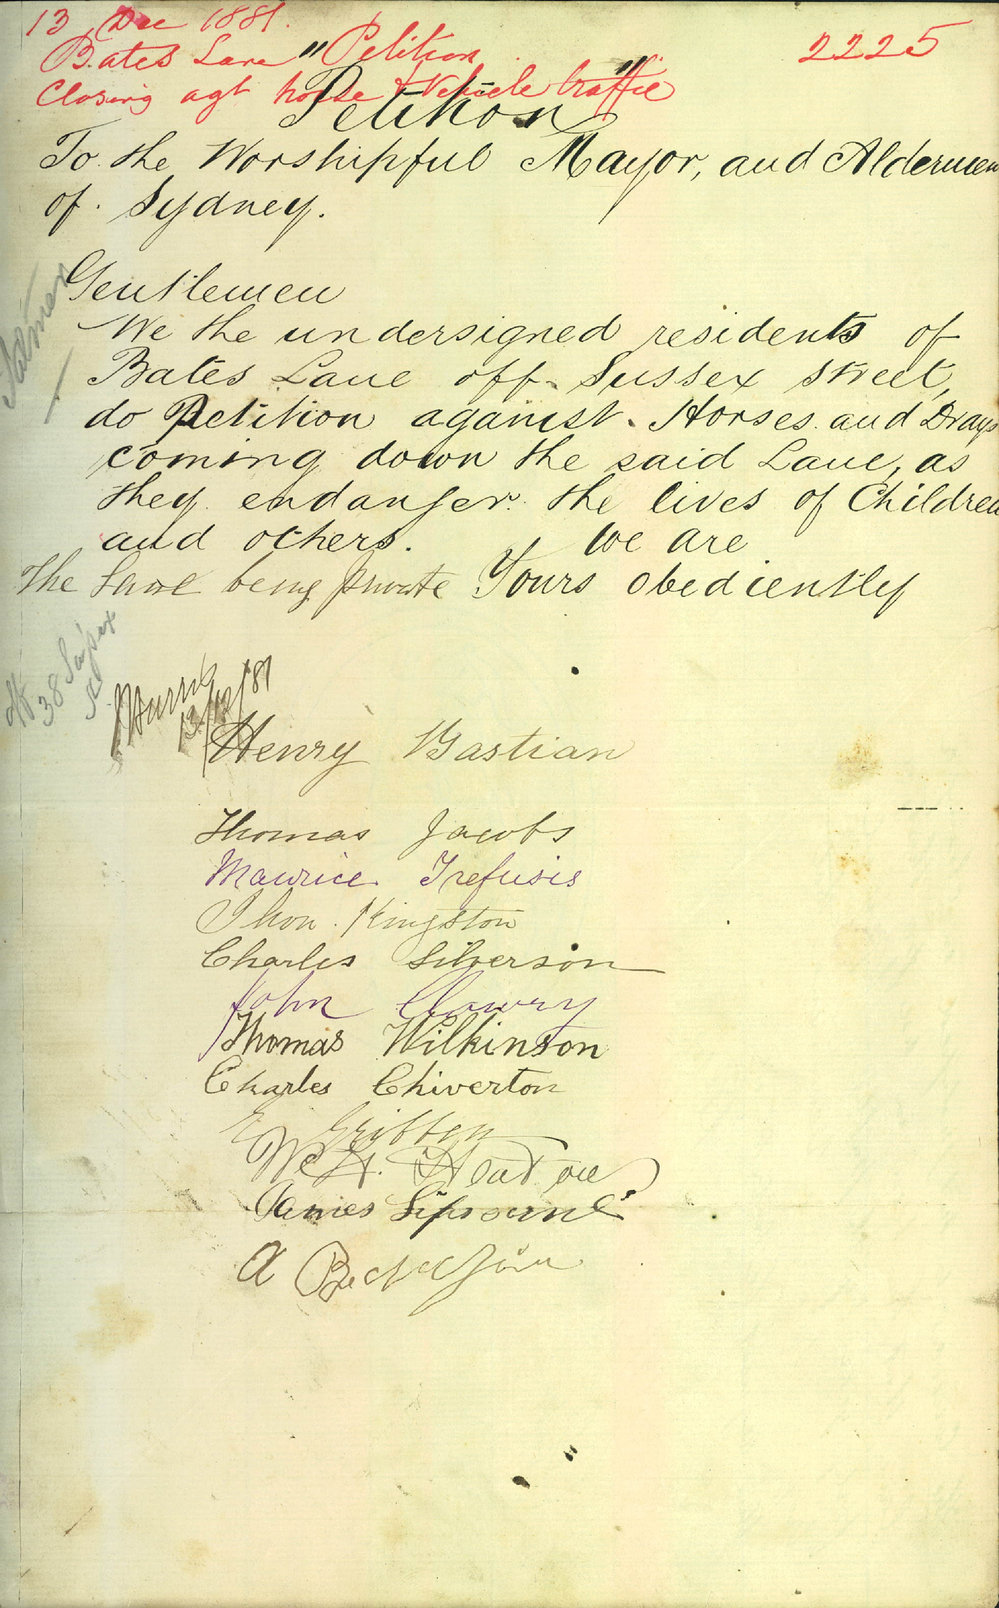 13 Dec 1881.
Bates Lane Petition
2225
Closing agt horse & Vehicle traffic
"Petition"
To the Worshipful Mayor, and Aldermen
of Sydney.
Gentlemen
We the undersigned residents of
Bates Lane off Sussex Street,
do Petition against Horses and Drays
coming down the said Lane, as
they endanger the lives of Children
and others. We are
The Lane being private Yours obediently
38 Sussex
St
13/12/81
Henry Bastian
Thomas Jacobs
Maurice Trefusis
Thon. Kingston
Charles Silverson
John Clowry
Thomas Wilkinson
Charles Chiverton
E Gribben
James
A